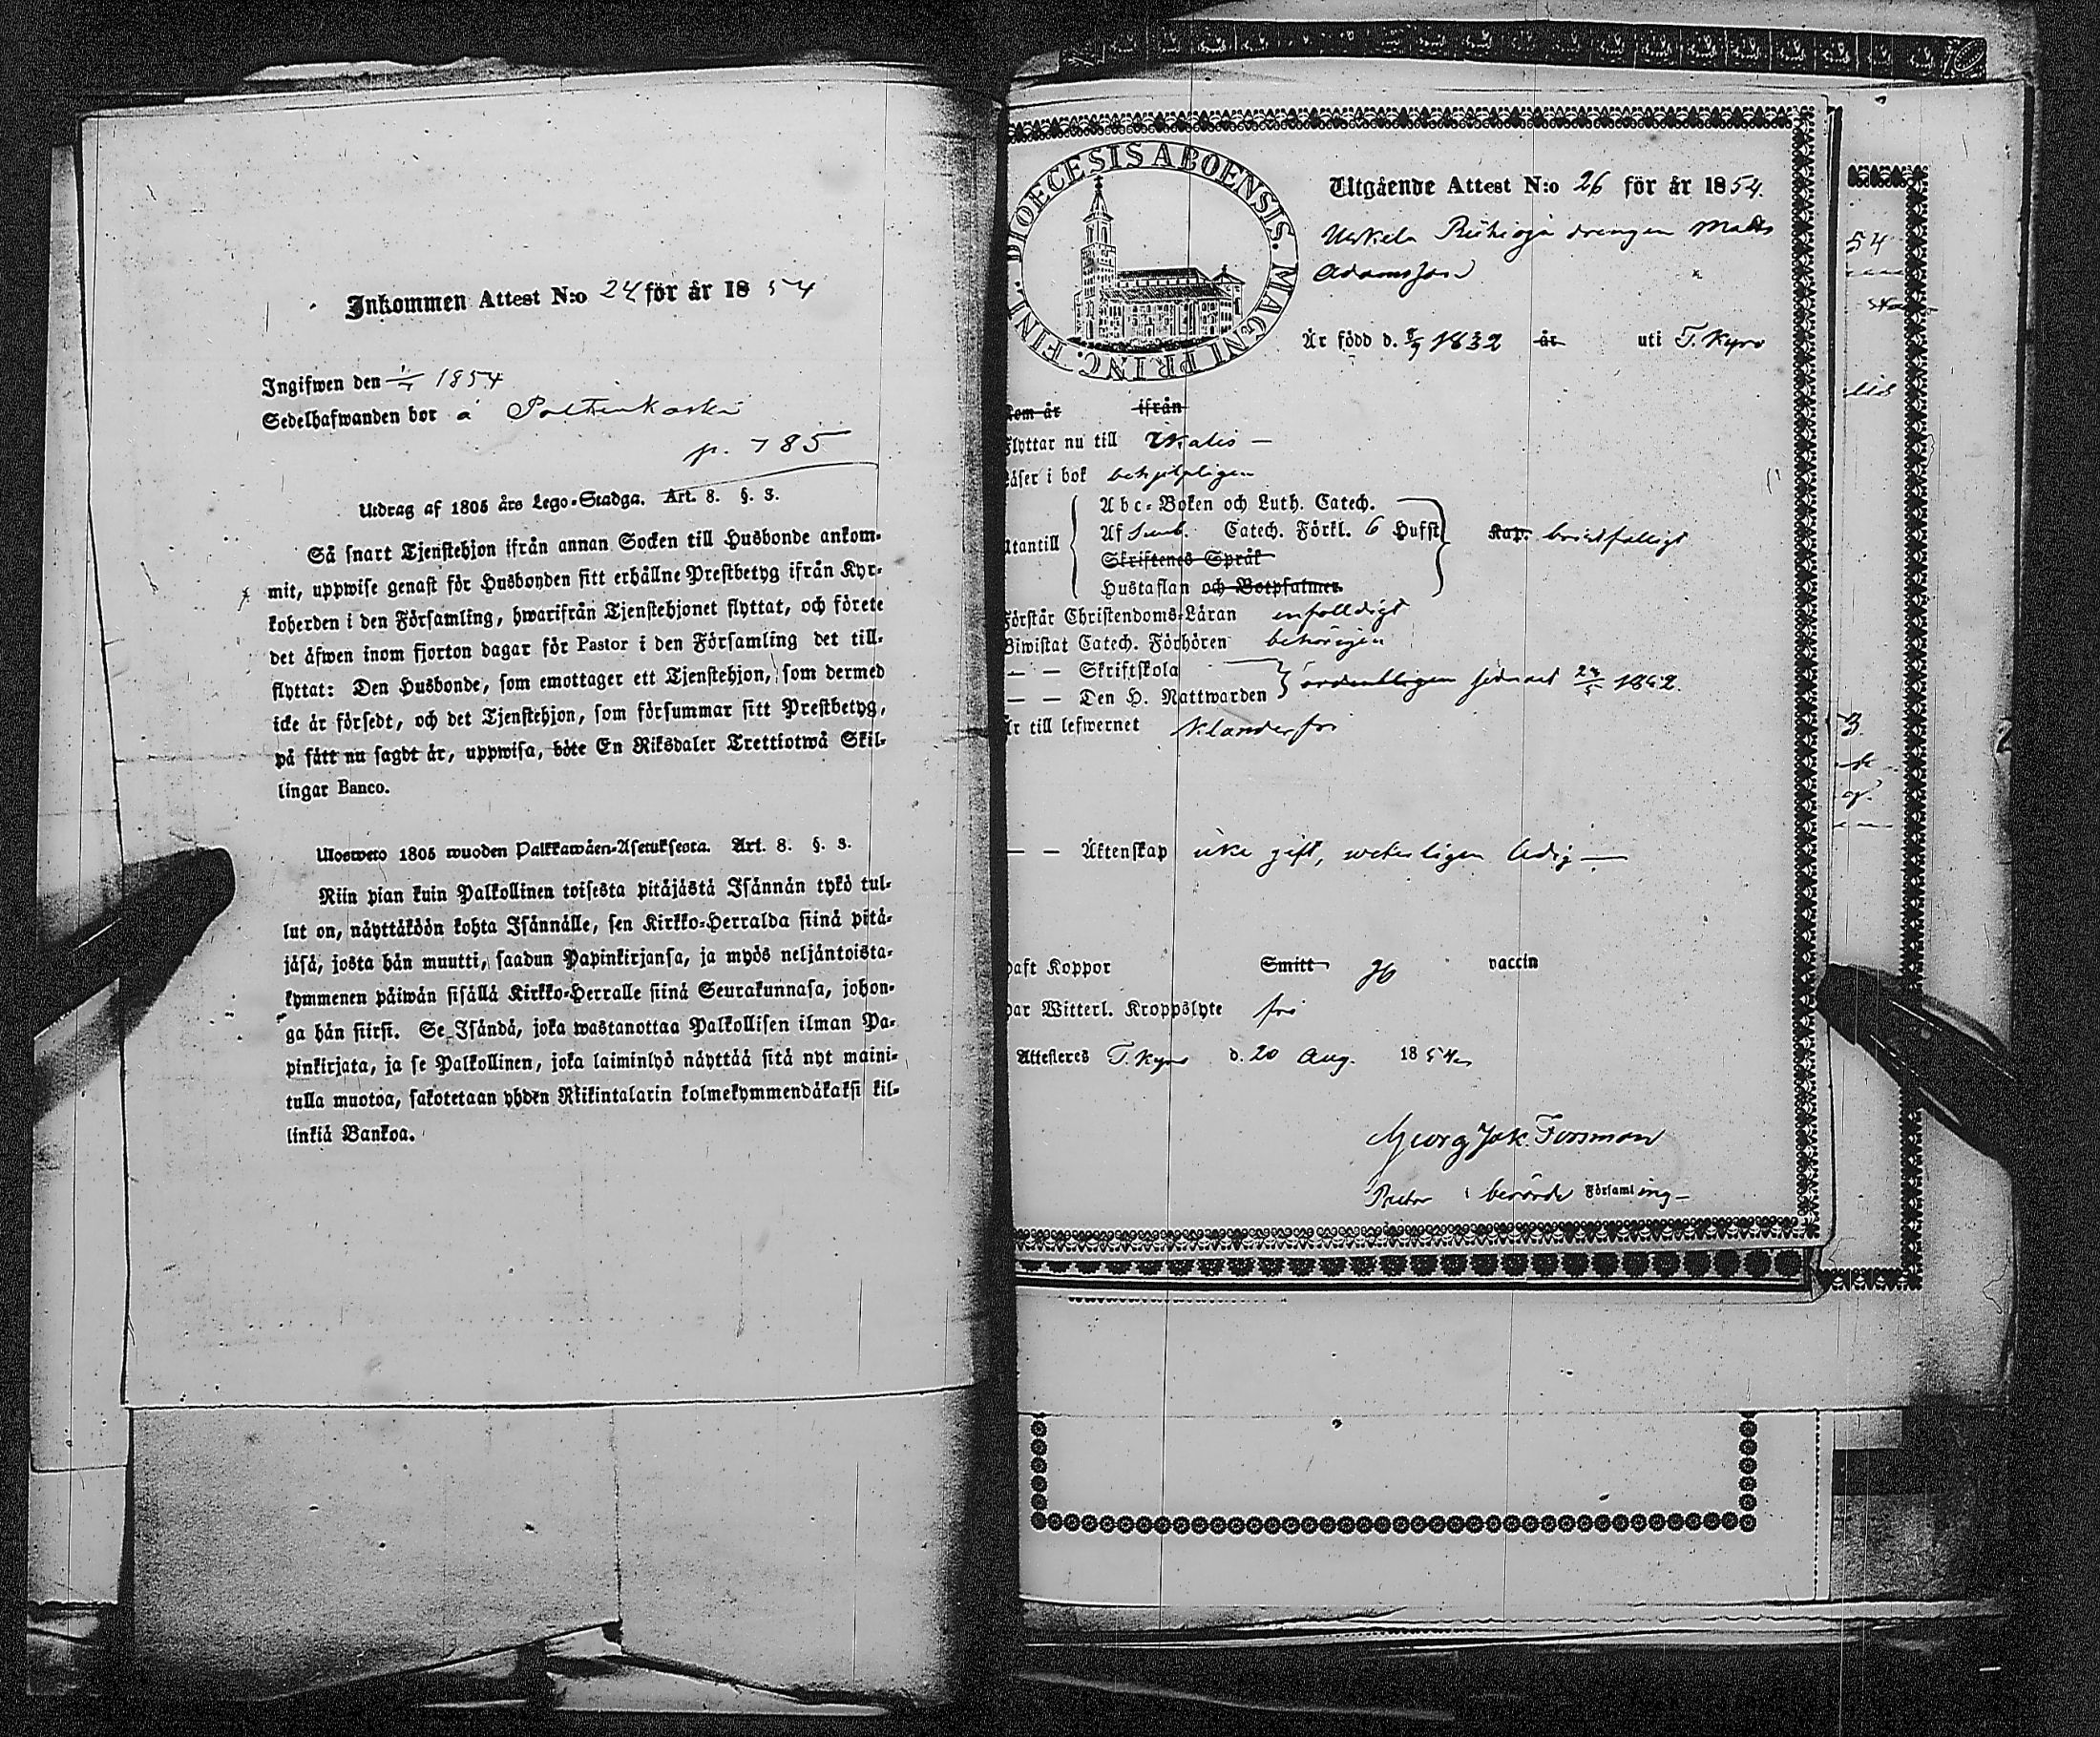 Inkommen Attest N:o 24 för år 18 54
Ingifwen den 1854
Sedelhafwanden bor å
p. 785
Utdrag af 1805 års Lego-Stadga. Art. 8. §. 3.
Så snart Tjenstehjon ifrån annan Socken till Husbonde ankom-
mit, uppwise genast för Husbonden sitt erhållne Prestbetyg ifrån Kyr-
koherden i den Församling, hwarifrån Tjenstehjonet flyttat, och förete
det äfwen inom fjorton dagar för Pastor i den Församling det till-
flyttat: Den Husbonde, som emottager ett Tjenstehjon, som dermed
icke är försedt, och det Tjenstehjon, som försummar sitt Prestbetyg,
på sätt nu sagdt är, uppwisa, böte En Riksdaler Trettiotwå Skil-
lingar Banco.
Ulosweto 1805 wuoden Palkkawäen-Asetuksesta. Art. 8. §. 3.
Niin pian kuin Palkollinen toisesta pitäjästä Isännän tykö tul-
lut on, näyttäköön kohta Isännälle, sen Kirkko-Herralda siinä pitä-
jäsä, josta hän muutti, saadun Papinkirjansa, ja myös neljäntoista-
kymmenen päiwän sisällä Kirkko-Herralle siinä Seurakunnasa, johon-
ga hän siirsi. Se Isändä, joka wastanottaa Palkollisen ilman Pa-
pinkirjata, ja se Palkollinen, joka laiminlyö näyttää sitä nyt maini-
tulla muotoa, sakotetaan yhden Riikintalarin kolmekymmendäkaksi kil-
linkiä Bankoa.
DIOECESIS ABOENSIS. MAGNI PRINC. FINL.
Utgående Attest N:o 26 för år 1854.
drengen Matts
Adamsson
Är född d. 8/9 1832 år uti T. Kyro
som är ifrån
Flyttar nu till Ikalis —
Läser i bok behjelpligen
Utantill
Abc-Boken och Luth. Catech.
Af Catech. Förkl. 6 Hufst
Skriftenes Språk
Hustaflan och Botpsalmer
Kap. bristfälligt
Förstår Christendoms-Läran enfalldigt
Biwistat Catech. Förhören behörigen
— — Skriftskola
— — Den H. Nattwarden
ordentligen sednast
Är till lefwernet klanderfri
— — Äktenskap icke gift, weterligen ledig —
haft Koppor Smitt vaccin
har Witterl. Kroppslyte fri
Attesteres T. Kyro d. 20 Aug. 1854
Georg Jak. Forsman
Pastor i berörde Församling —